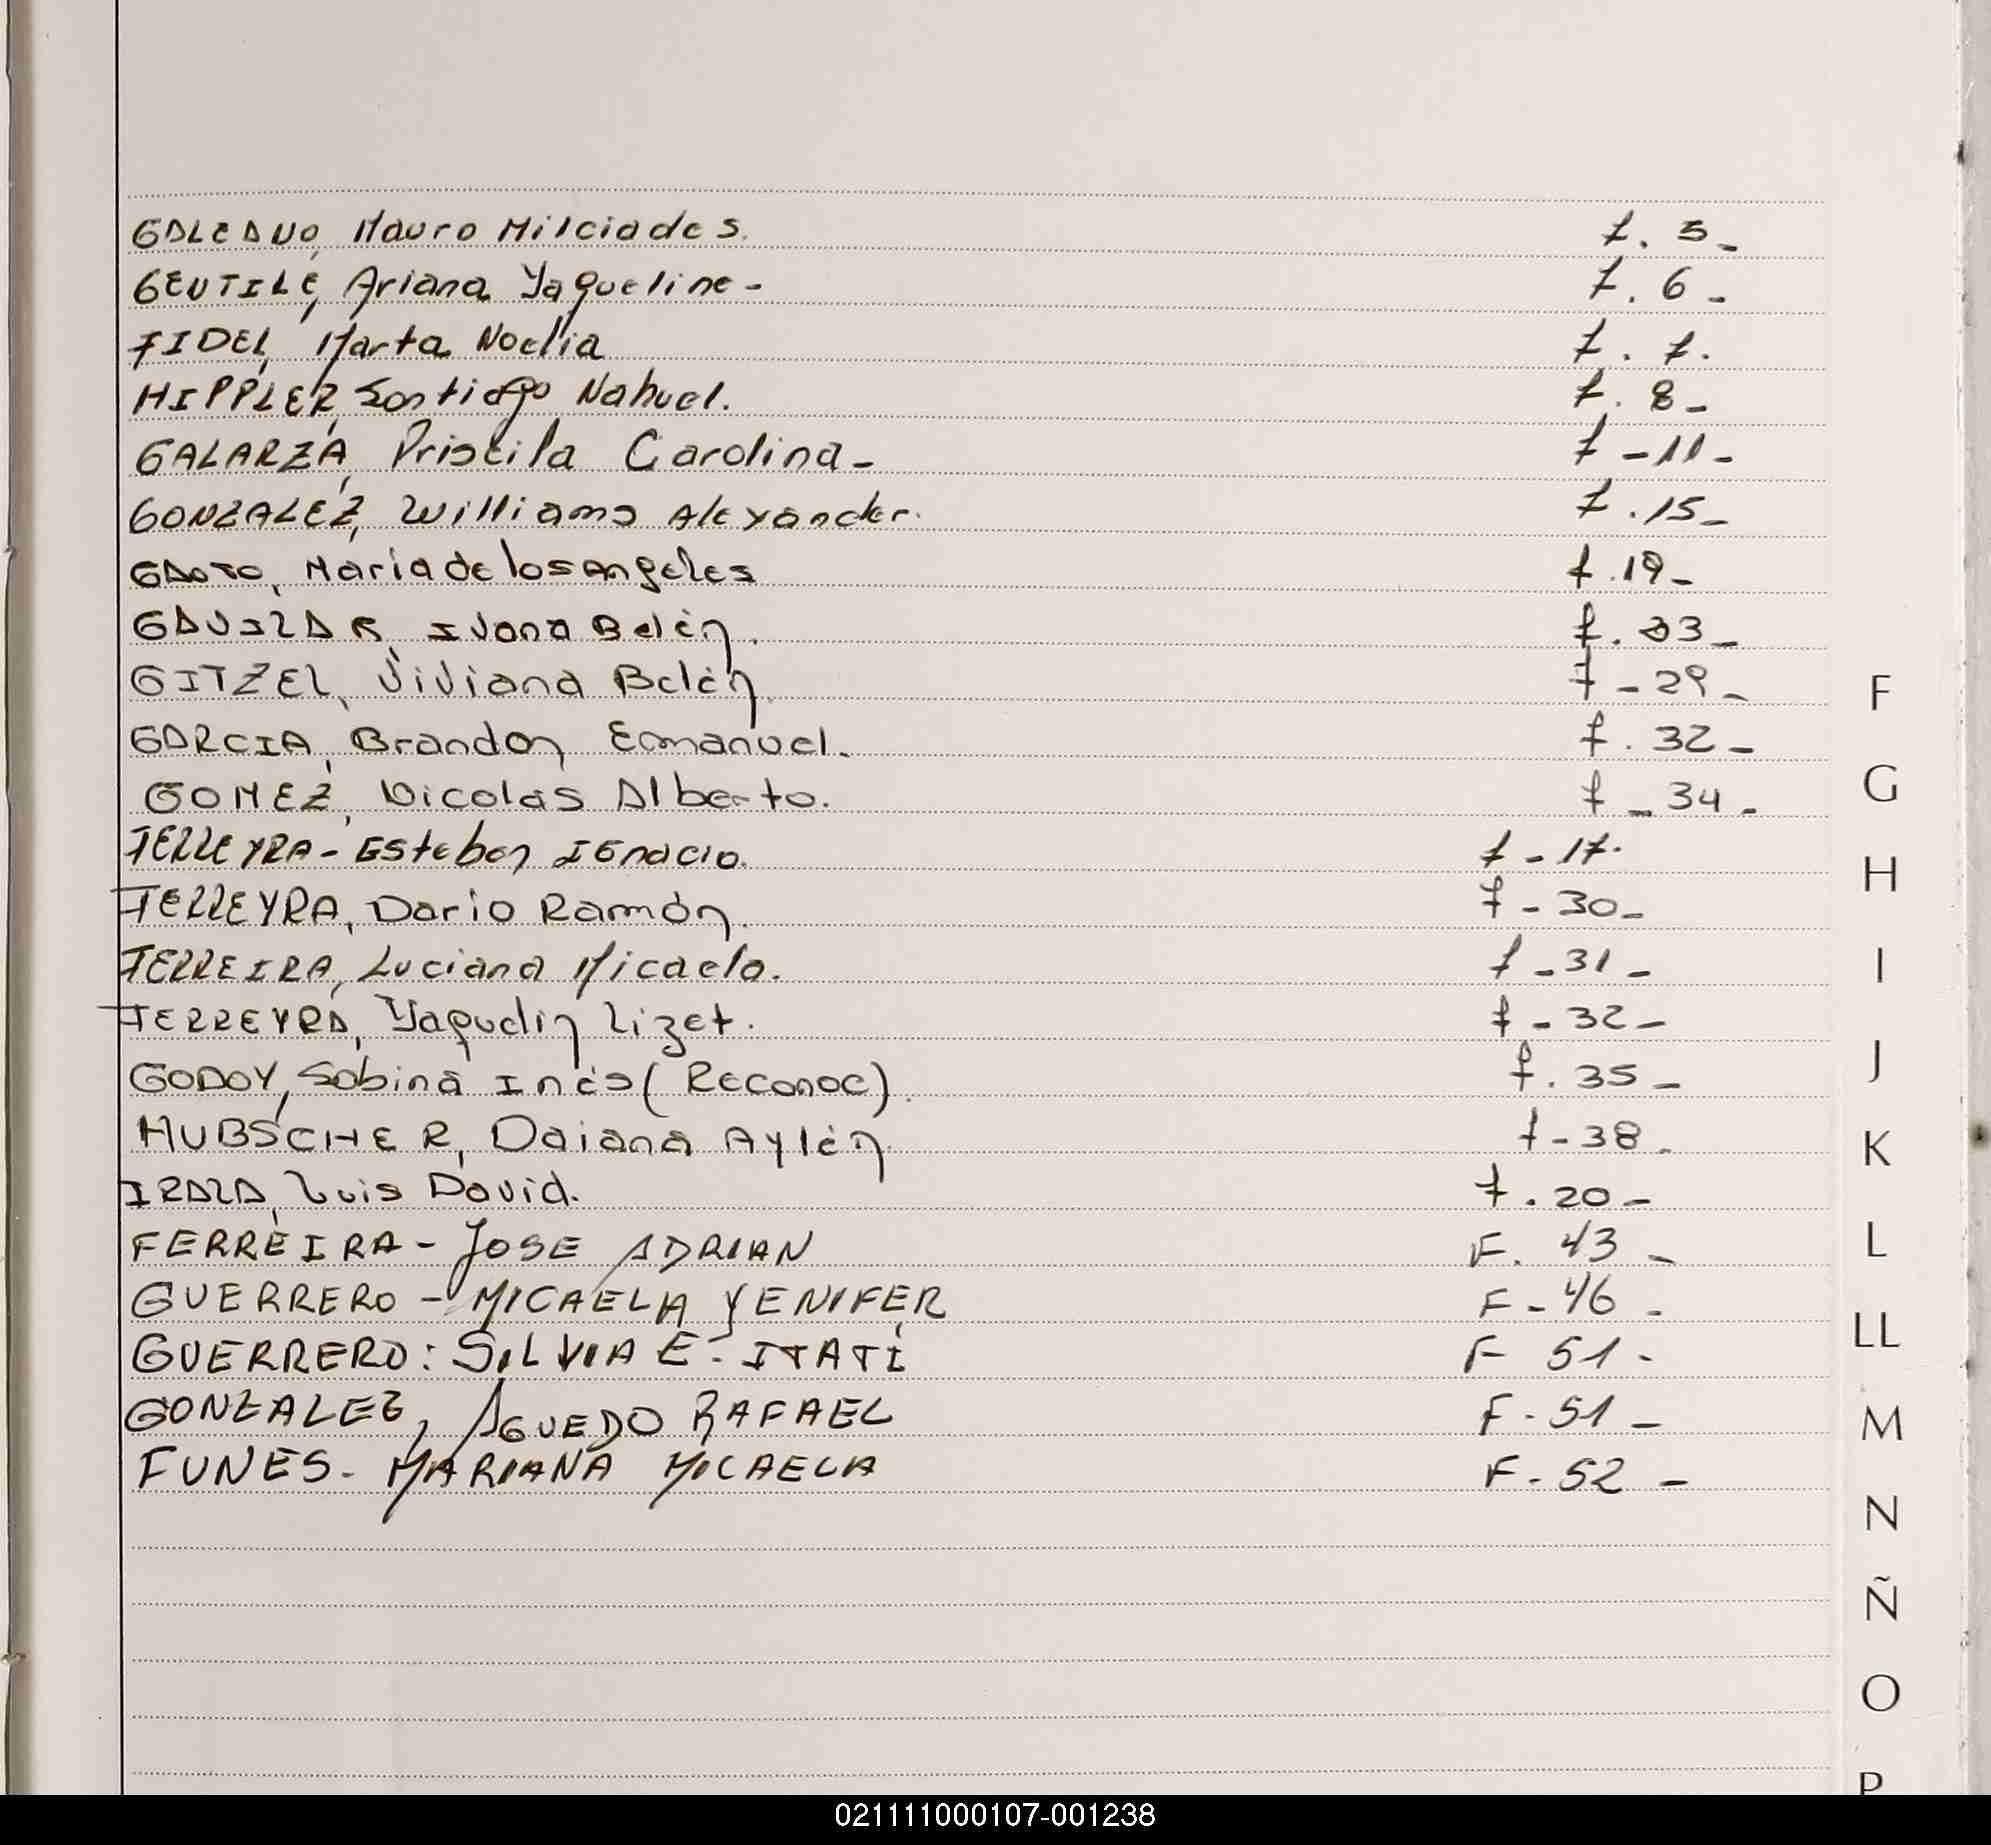 GALEANO, Mauro Milciades. f. 5-
GENTILE, Ariana Yaqueline- f. 6-
FIDEL, Marta Noelia f. 7.
HIPPLER, Santiago Nahuel. f. 8-
GALARZA, Priscila Carolina- f-11-
GONZALEZ, Williams Alexander. f.15-
Maria de los angeles f.19-
Ivana Belén. f. 23-
GITZEL, Viviana Belén. f-29-
GARCIA, Brandon Emanuel. f. 32-
GOMEZ, Nicolás Alberto. f-34-
FERREYRA- Esteban IGnacio. f-17.
FERREYRA, Dario Ramón. f-30-
FERREIRA, Luciana Micaela. f-31-
FERREYRA, Yaquelin Lizet. f-32-
GODOY, Sabina Inés (Reconoc). f. 35-
HUBSCHER, Daiana Aylén. f-38-
IRALA, Luis David. f. 20-
FERREIRA- JOSE ADRIAN F. 43-
GUERRERO- MICAELA YENIFER F-46-
GUERRERO: SILVIA E- ITATÍ F 51-
GONZALEZ, AGUEDO RAFAEL F-51-
FUNES- MARIANA MICAELA F-52-
F
G
H
I
J
K
L
LL
M
N
Ñ
O
P
021111000107-001238